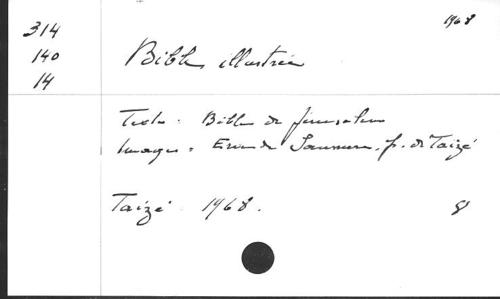 314
140
14
1968
Bible illustrée
Texte : Bible de Jérusalem
Images : de Taizé
Taizé 1968.
8